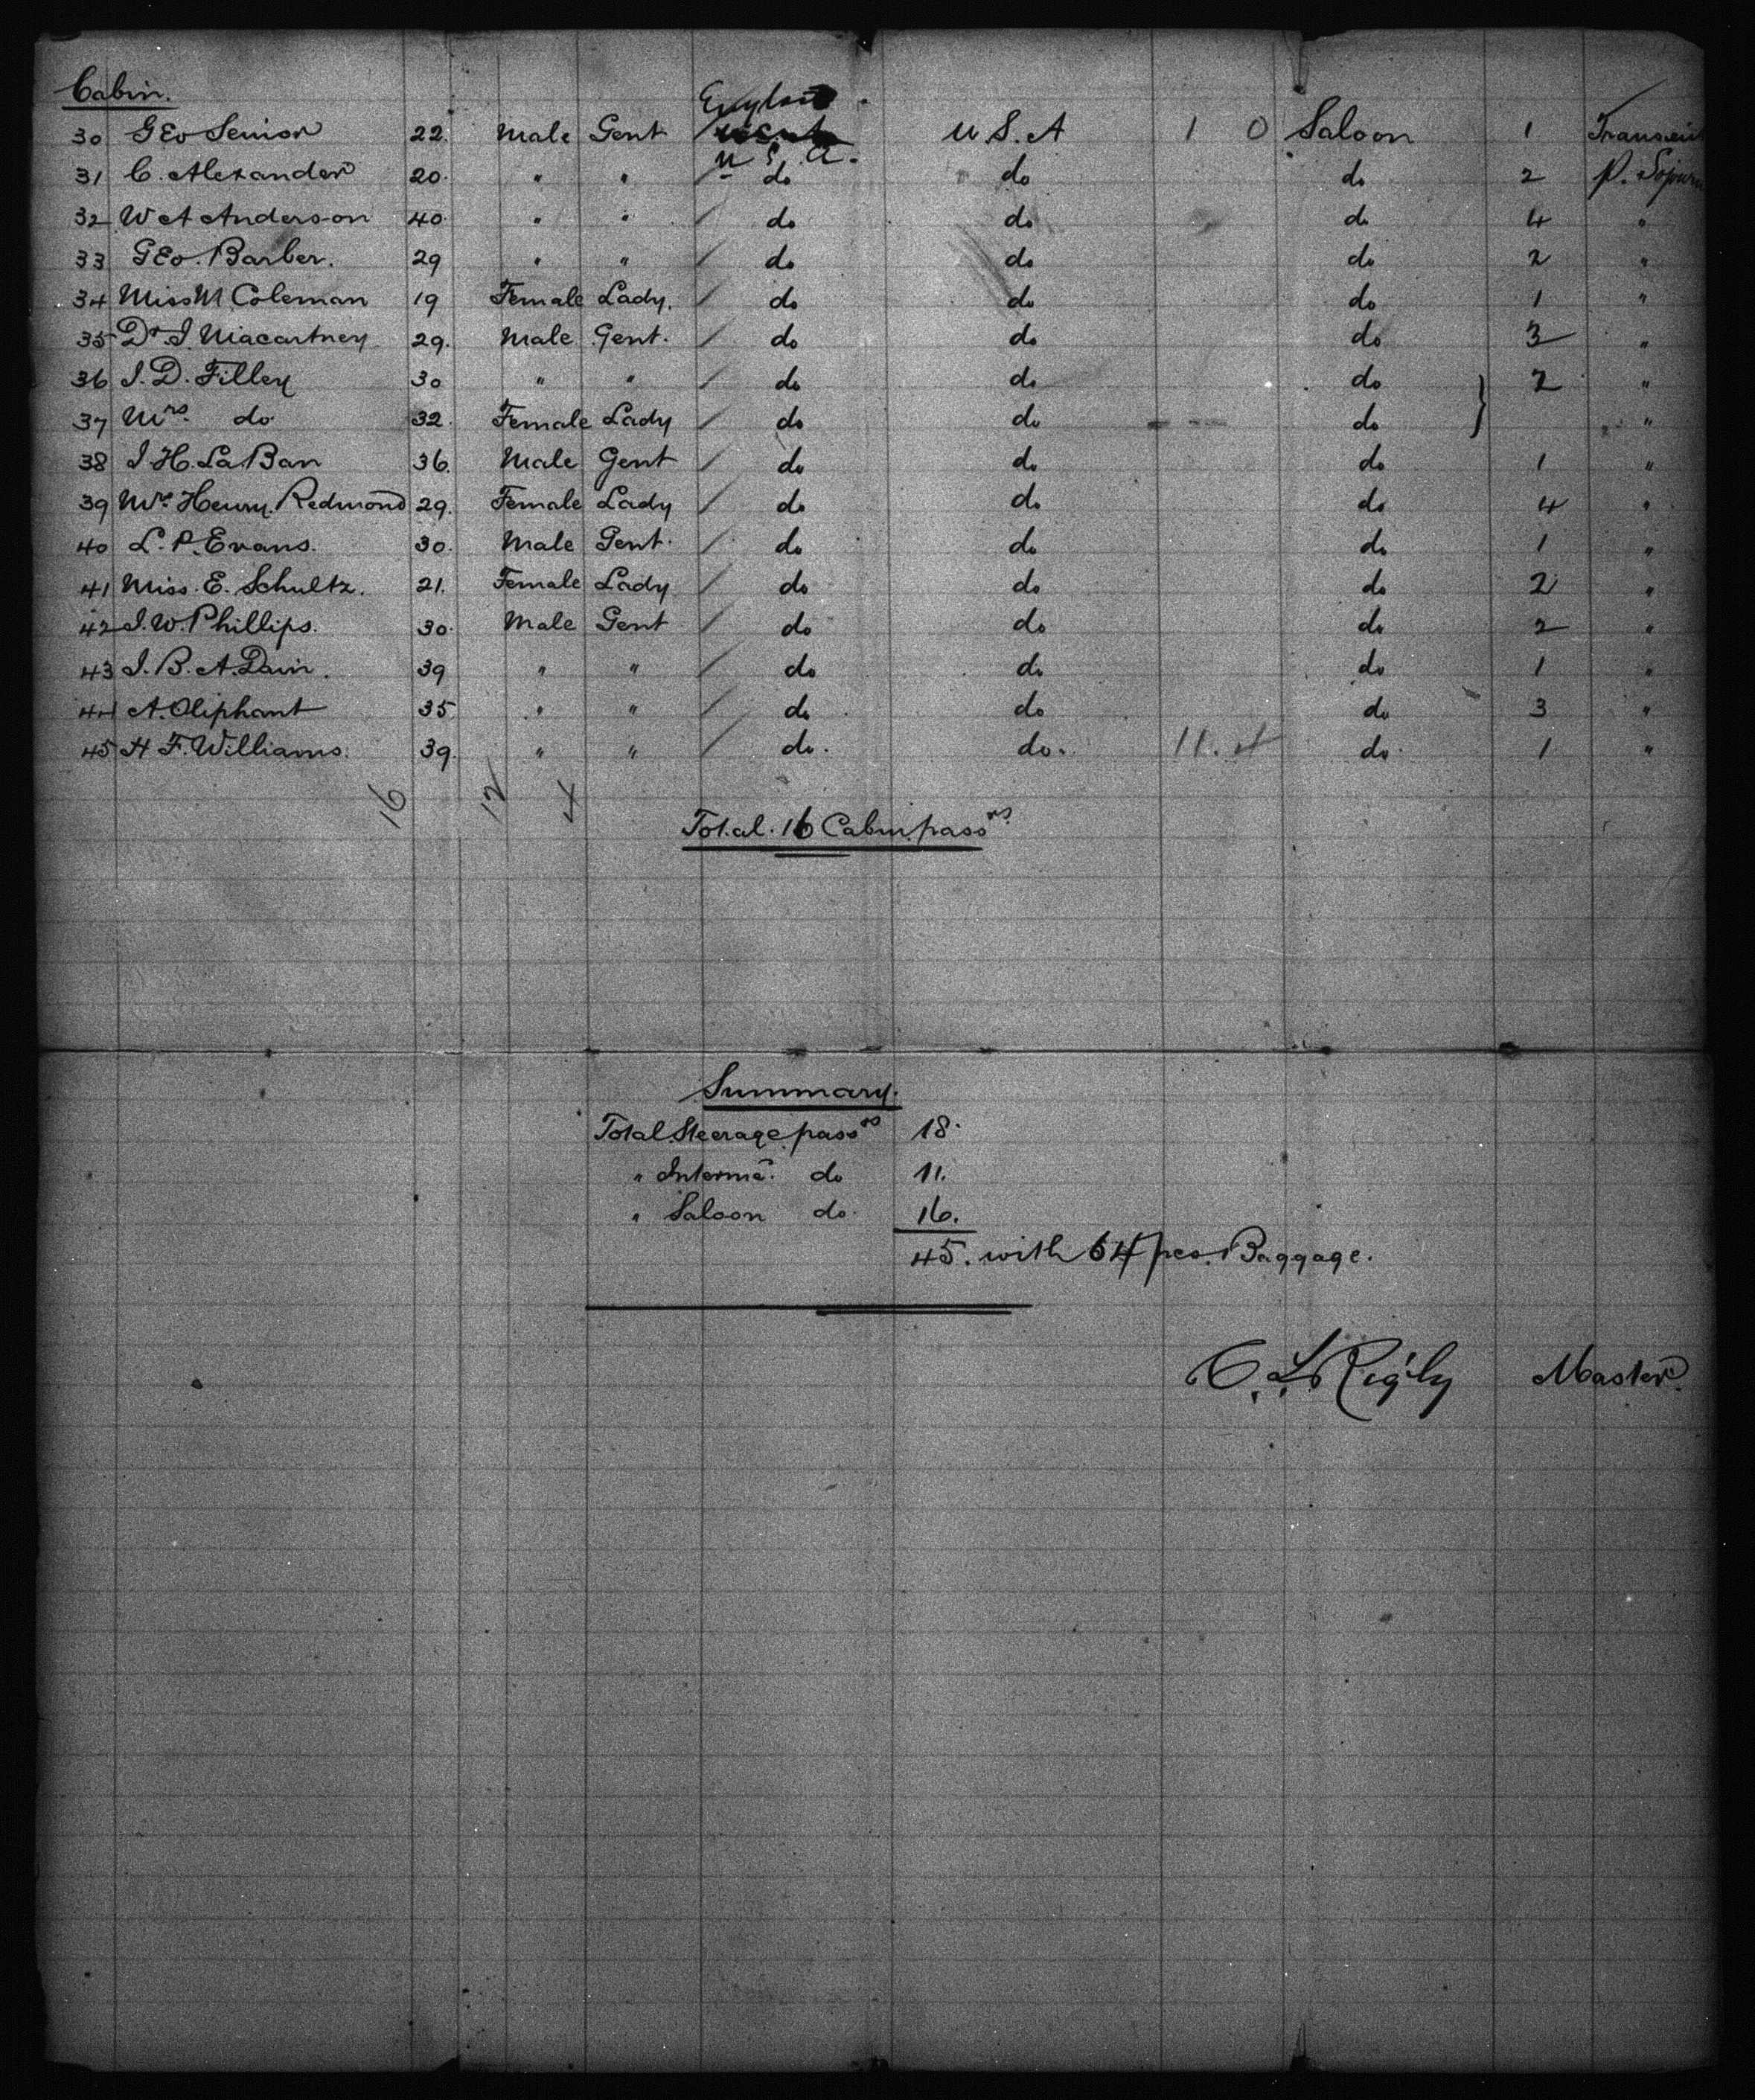 Cabin.
England
30 Geo Senior 22. Male Gent U.S.A 1 0 Saloon 1 Transient
U.S.A.
31 C. Alexander 20. " " / do do do 2 P. Sojourn
32 W A Anderson 40 " " / do do do 4 "
33 Geo. Barber. 29 " " / do do do 2 "
34 Miss M Coleman 19 Female Lady. / do do do 1 "
35 Dr J. Macartney 29. Male Gent. / do do do 3 "
36 J. D. Filley 30 " " / do do do } 2 "
37 Mrs. do 32. Female Lady / do do do "
38 J. H. LaBan 36. Male Gent / do do do 1 "
39 Mrs Henry Redmond 29. Female Lady / do do do 4 "
40 L. P. Evans. 30. Male Gent. / do do do 1 "
41 Miss. E. Schultz. 21. Female Lady / do do do 2 "
42 J. W. Phillips. 30. Male Gent / do do do 2 "
43 J. B. A. Dain. 39 " " / do do do 1 "
44 A. Oliphant 35 " " / do do do 3 "
45 H F. Williams. 39. " " / do. do. 11. do 1 "
16 12 4
Total. 16 Cabin passrs
Summary.
Total Steerage passrs 18.
" Interme. do 11.
" Saloon do. 16.
45. with 64 pcs. Baggage.
C. L. Rigby Master.